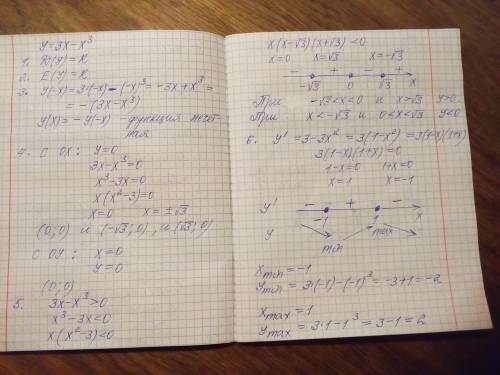 y=3x-x³
1. D(y)=R
2. E(y)=R
3. y(-x)=3·(-x)-(-x)³=-3x+x³=
= -(3x-x³)
y(x)=-y(-x) - функция нечет-
ная
4. С OX: y=0
3x-x³=0
x³-3x=0
x(x²-3)=0
x=0 x=±√3
(0;0) и (-√3;0), и (√3;0)
С OY: x=0
y=0
(0;0)
5. 3x-x³>0
x³-3x<0
x(x²-3)<0
x(x-√3)(x+√3)<0
x=0 x=√3 x=-√3
- + - +
-√3 0 √3 x
При -√3<x<0 и x>√3 y>0
При x<-√3 и 0<x<√3 y<0
6. y'=3-3x²=3(1-x²)=3(1-x)(1+x)
3(1-x)(1+x)=0
1-x=0 1+x=0
x=1 x=-1
y' - + -
-1 1 x
y min max
x min=-1
y min=3·(-1)-(-1)³=-3+1=-2
x max=1
y max=3·1-1³=3-1=2